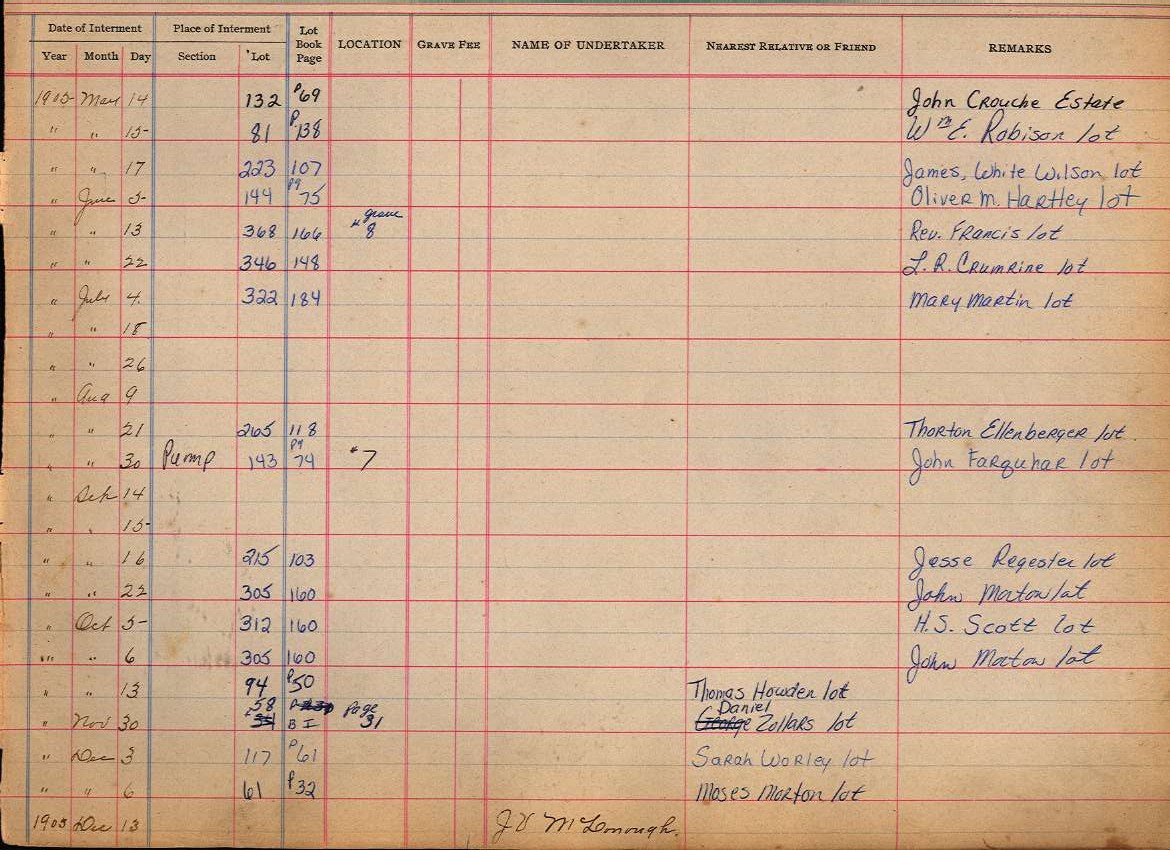 Date of Interment Place of Interment Lot Book Page LOCATION GRAVE FEE NAME OF UNDERTAKER NEAREST RELATIVE OR FRIEND REMARKS
Year Month Day Section Lot
1905 May 14 132 P69 John Crouche Estate
" " 15 81 P.138 Wm E. Robison lot
" " 17 223 107 James, White Wilson lot
" June 5 144 pg 75 Oliver M. Hartley lot
" " 13 368 166 " grave 8 Rev. Francis lot
" " 22 346 148 L.R. Crumrine lot
" July 4. 322 184 Mary Martin lot
" " 18
" " 26
" Aug 9
" " 21 265 118 Thorton Ellenberger lot
" " 30 Pump 143 pg 74 "7 John Farquhar lot
" Sept 14
" " 15
" " 16 215 103 Jesse Regester lot
" " 22 305 160 John Morton lot
" Oct 5 312 160 H.S. Scott lot
" " 6 305 160 John Morton lot
" " 13 94 P50 Thomas Howden lot
" Nov 30 58 B I Page 31 George Daniel Zollars lot
" Dec 3 117 P61 Sarah Worley lot
" " 6 61 P32 Moses Morton lot
1905 Dec 13 J V McDonough.